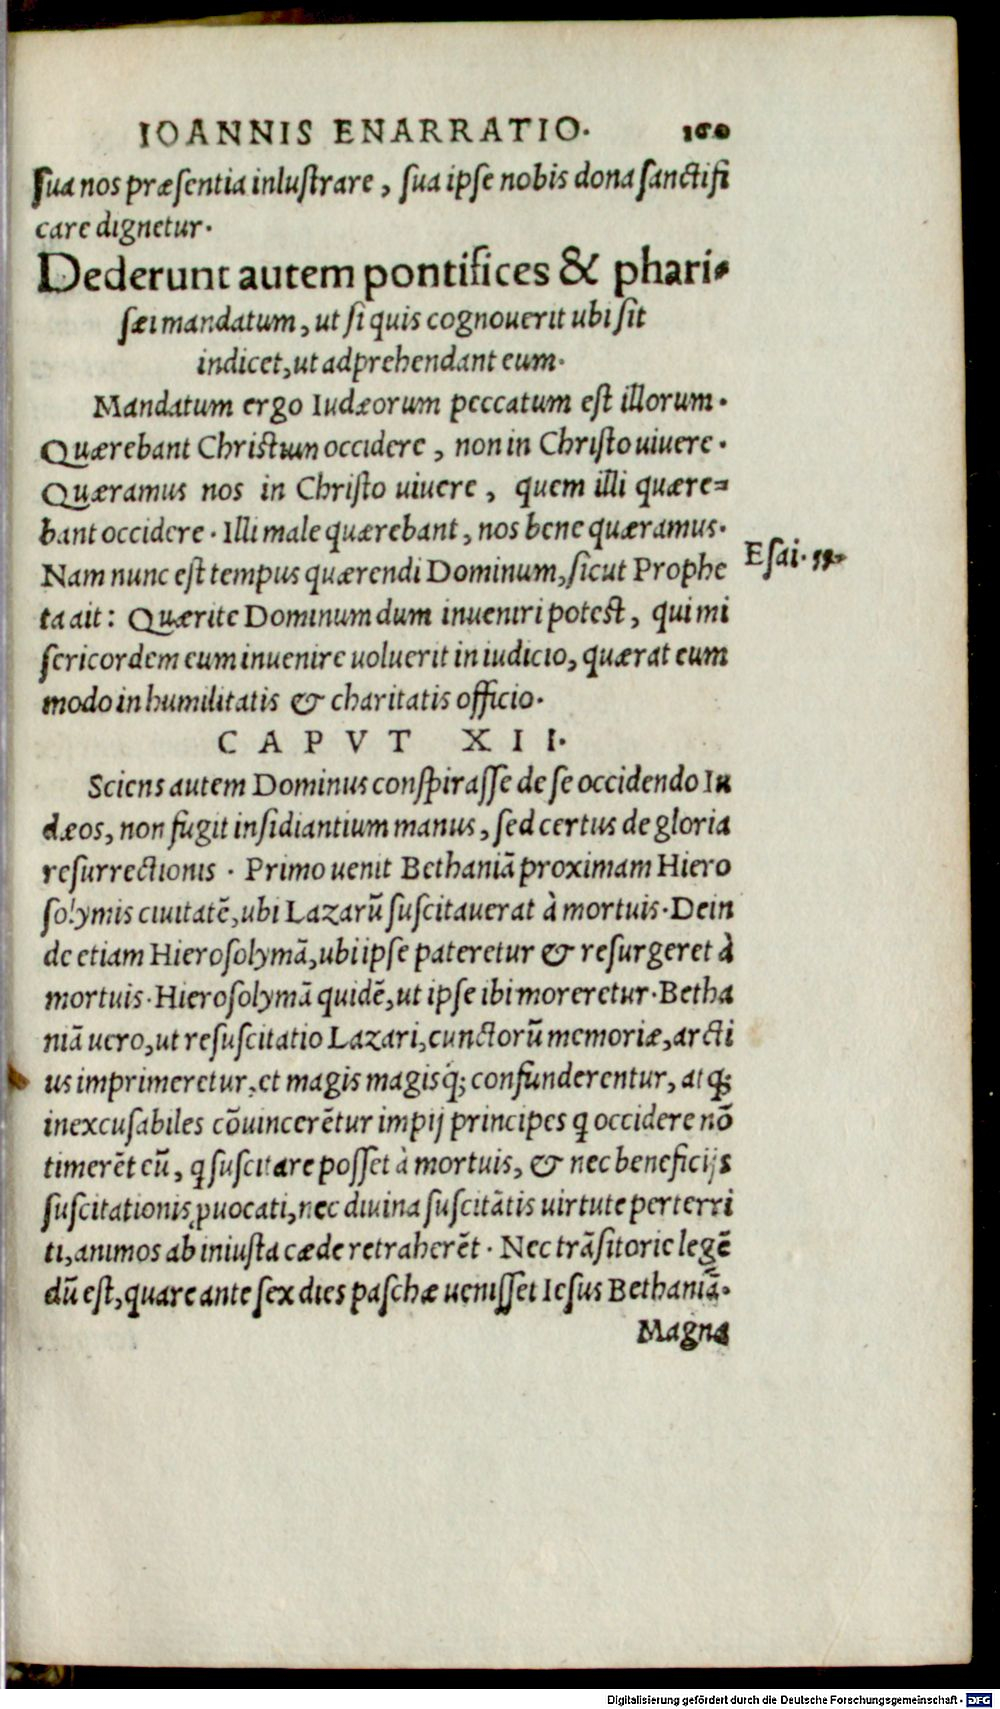 IOANNIS ENARRATIO. 160
sua nos præsentia inlustrare, sua ipse nobis dona sanctifi
care dignetur.
Dederunt autem pontifices & phari-
sæi mandatum, ut si quis cognouerit ubi sit
indicet, ut adprehendant eum.
Mandatum ergo Iudæorum peccatum est illorum.
Quærebant Christum occidere, non in Christo uiuere.
Quæramus nos in Christo uiuere, quem illi quære=
bant occidere. Illi male quærebant, nos bene quæramus.
Nam nunc est tempus quærendi Dominum, sicut Prophe
Esai. 55.
ta ait: Quærite Dominum dum inueniri potest, qui mi
sericordem eum inuenire uoluerit in iudicio, quærat eum
modo in humilitatis & charitatis officio.
CAPVT XII.
Sciens autem Dominus conspirasse de se occidendo Iu
dæos, non fugit insidiantium manus, sed certus de gloria
resurrectionis. Primo uenit Bethaniā proximam Hiero
solymis ciuitatē, ubi Lazarū suscitauerat à mortuis. Dein
de etiam Hierosolymā, ubi ipse pateretur & resurgeret à
mortuis. Hierosolymā quidē, ut ipse ibi moreretur. Betha
niā uero, ut resuscitatio Lazari, cunctorū memoriæ, arcti
us imprimeretur, et magis magisq; confunderentur, atq;
inexcusabiles cōuincerētur impij principes q̄ occidere nō
timerēt eū, q̄ suscitare posset à mortuis, & nec beneficijs
suscitationis ꝓuocati, nec diuina suscitātis uirtute perterri
ti, animos ab iniusta cæde retraherēt. Nec trāsitorie legē
dū est, quare ante sex dies paschæ uenisset Iesus Bethaniā.
Magna
Digitalisierung gefördert durch die Deutsche Forschungsgemeinschaft - DFG